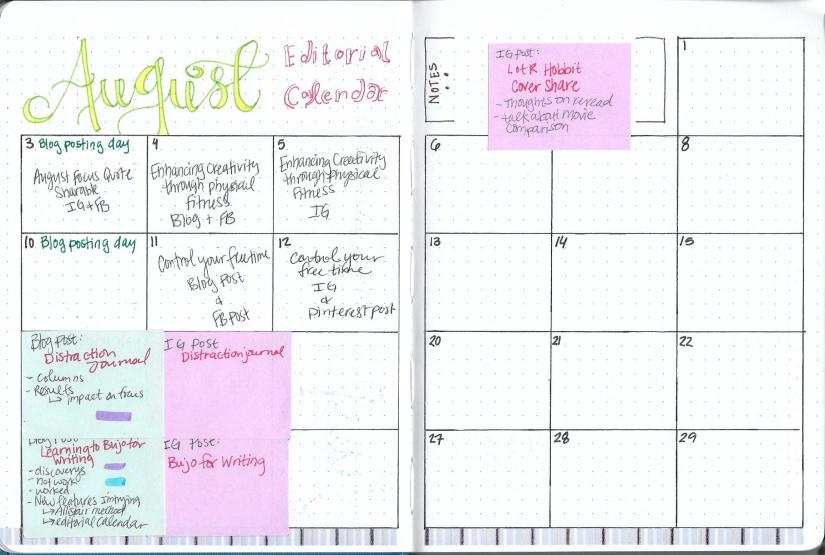 August
Editorial
Calendar
3 Blog posting day
August Focus Quote
Sharable
IG + FB
4
Enhancing Creativity
through physical
fitness
Blog + FB
5
Enhancing Creativity
through physical
Fitness
IG
10 Blog posting day
11
Control your free time
Blog Post
&
FB Post
12
Control your
free time
IG
&
Pinterest post
Blog post:
Distraction
Journal
- Columns
- Results
↳ impact on focus
IG Post
Distraction journal
Blog Post
Learning to Bujo for
writing
- discoverys
- not work
- worked
- New features I'm trying
↳ Allistair method
↳ editorial calendar
IG Post:
Bujo for Writing
NOTES
IG post:
LotR Hobbit
Cover Share
- Thoughts on reread
- talk about movie
comparison
1
6
8
13
14
15
20
21
22
27
28
29